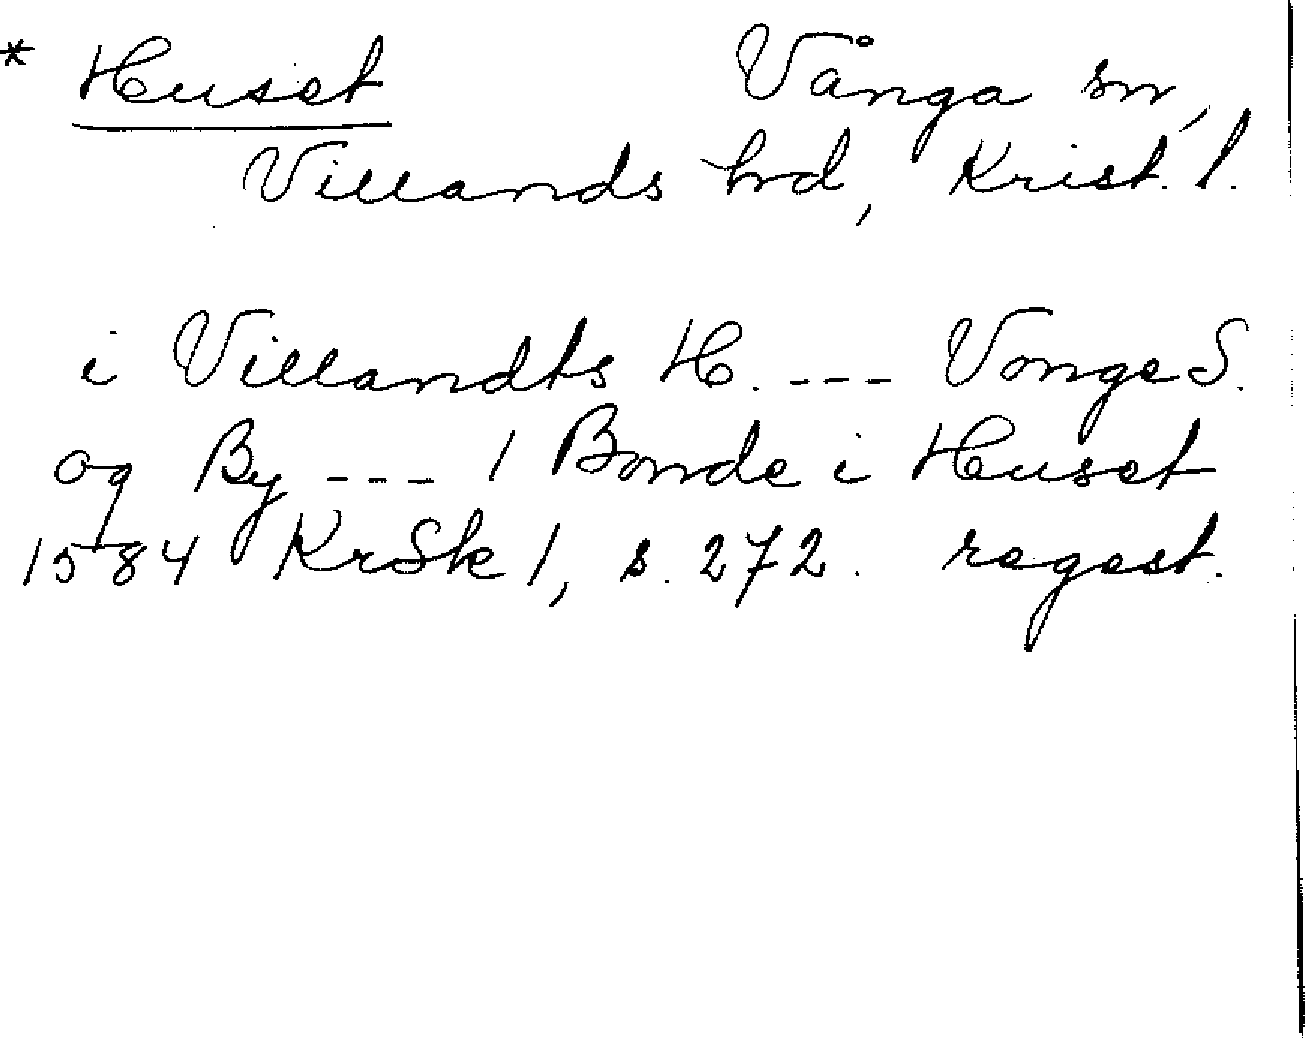 * Huset Vånga sn,
Villands hd, Krist. l.
i Villandts H. --- Vonge S.
og By --- 1 Bonde i Huset
1584 KrSk 1, s. 272. regest.